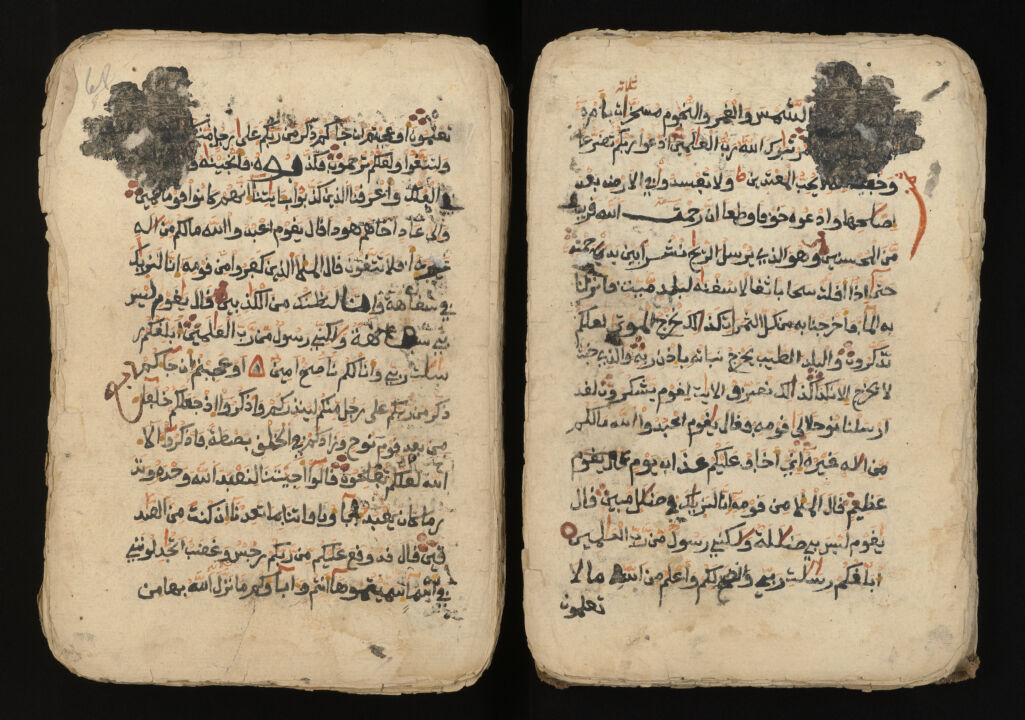 ثلاثة
الشمس والقمر والنجوم مسخرات بامره
تبرك الله رب العلمين ادعوا ربكم تضرعا
وخفية لا يحب المعتدين ولا تفسدوا في الارض بعد
اصلحها وادعوه خوفا وطمعا ان رحمت الله قريب
من المحسنين وهو الذي يرسل الريح نشرا بين يدي رحمته
حتى اذا اقلت سحابا ثقالا سقنه لبلد ميت فانزلنا
به الماء فاخرجنا به من كل الثمرات كذلك نخرج الموتى لعلكم
تذكرون والبلد الطيب يخرج نباته باذن ربه والذي خبث
لا يخرج الا نكدا كذلك نصرف الايت لقوم يشكرون لقد
ارسلنا نوحا الى قومه فقال يقوم اعبدوا الله ما لكم
من اله غيره اني اخاف عليكم عذاب يوم
عظيم قال الملا من قومه انا لنريك في ضلل مبين قال
يقوم ليس بي ضللة ولكني رسول من رب العلمين
ابلغكم رسلت ربي وانصح لكم واعلم من الله ما لا
تعلمون
تعلمون او عجبتم ان جاكم ذكر من ربكم على رجل منكم
ولتتقوا ولعلكم ترحمون فكذبوه فانجينه و
الفلك واغرقنا الذين كذبوا بايتنا انهم كانوا قوما عمين
والى عاد اخاهم هودا قال يقوم اعبدوا الله ما لكم من اله
غيره افلا تتقون قال الملا الذين كفروا من قومه انا لنريك
في سفاهة وانا لنظنك من الكذبين قال يقوم ليس
بي سفاهة ولكني رسول من رب العلمين ابلغكم ر
سلت ربي وانا لكم ناصح امين او عجبتم ان جاكم
ذكر من ربكم على رجل منكم لينذركم واذكروا اذ جعلكم خلفا
من بعد قوم نوح وزادكم في الخلق بصطة فاذكروا الا
الله لعلكم تفلحون قالوا اجيتنا لنعبد الله وحده ونذ
ر ما كان يعبد اباونا فاتنا بما تعدنا ان كنت من الصد
قين قال قد وقع عليكم من ربكم رجس وغضب اتجدلونني
في اسما سميتموها انتم واباوكم ما نزل الله بها من